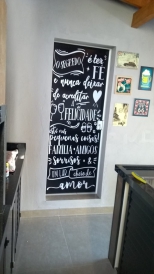 O SEGREDO
é ter
FÉ
e nunca deixar
de acreditar
FELICIDADE
está nas
pequenas coisas!
FAMÍLIA • AMIGOS
sorrisos • &
UM LAR cheio de
amor